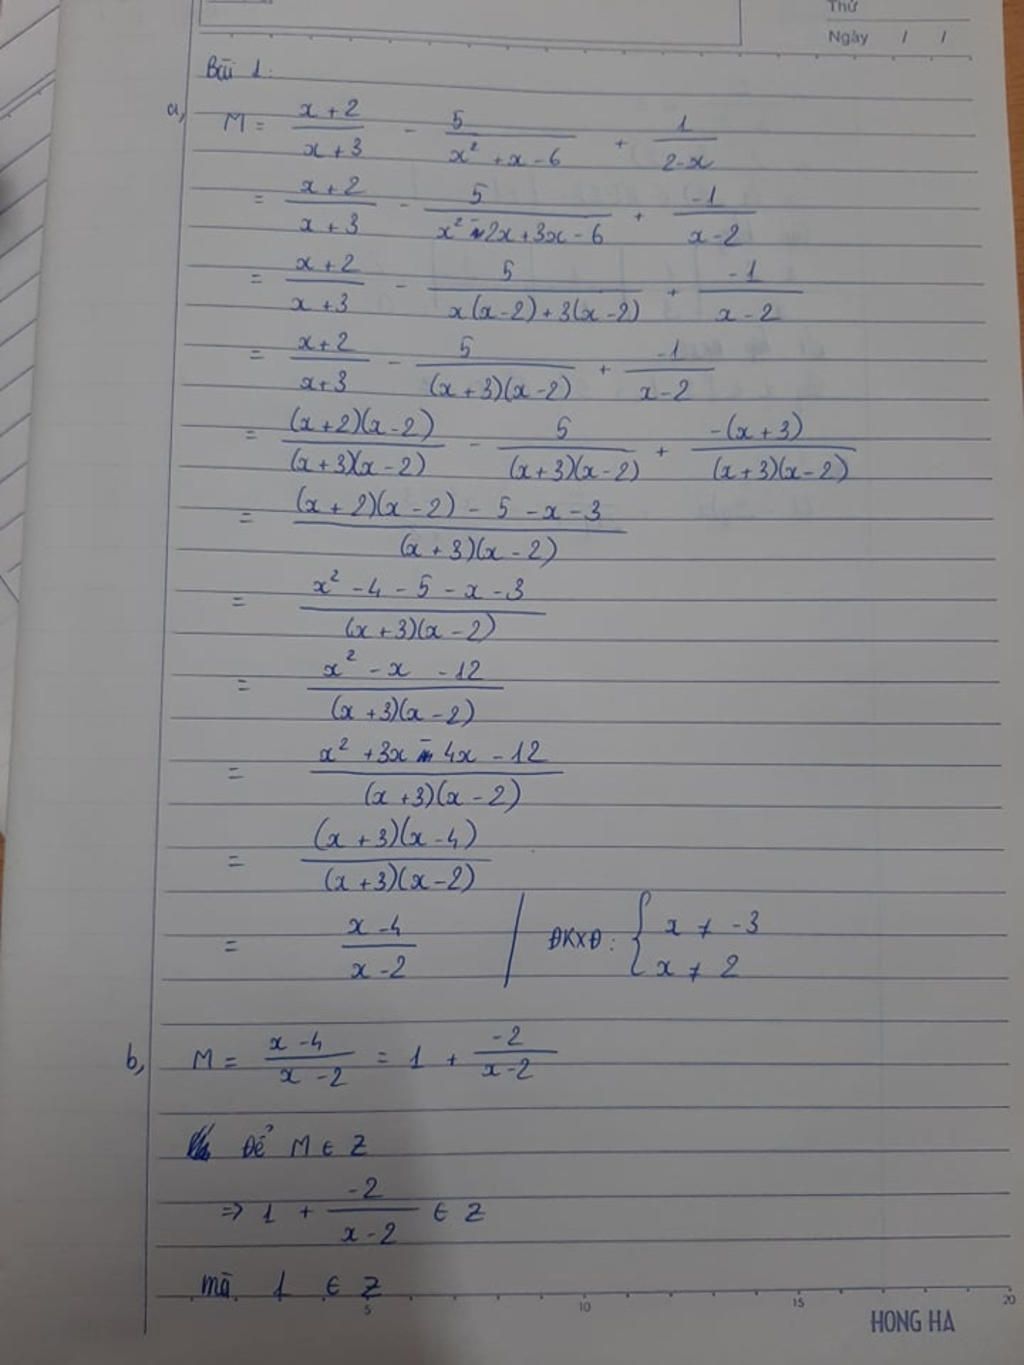 Thứ
Ngày / /
Bài 1:
a, M = \frac{x+2}{x+3} - \frac{5}{x^2+x-6} + \frac{1}{2-x}
= \frac{x+2}{x+3} - \frac{5}{x^2-2x+3x-6} + \frac{-1}{x-2}
= \frac{x+2}{x+3} - \frac{5}{x(x-2)+3(x-2)} + \frac{-1}{x-2}
= \frac{x+2}{x+3} - \frac{5}{(x+3)(x-2)} + \frac{-1}{x-2}
= \frac{(x+2)(x-2)}{(x+3)(x-2)} - \frac{5}{(x+3)(x-2)} + \frac{-(x+3)}{(x+3)(x-2)}
= \frac{(x+2)(x-2)-5-x-3}{(x+3)(x-2)}
= \frac{x^2-4-5-x-3}{(x+3)(x-2)}
= \frac{x^2-x-12}{(x+3)(x-2)}
= \frac{x^2+3x-4x-12}{(x+3)(x-2)}
= \frac{(x+3)(x-4)}{(x+3)(x-2)}
= \frac{x-4}{x-2} | ĐKXĐ: { x ≠ -3
x ≠ 2
b, M = \frac{x-4}{x-2} = 1 + \frac{-2}{x-2}
Để M ∈ Z
⇒ 1 + \frac{-2}{x-2} ∈ Z
mà 1 ∈ Z
5 10 15 20
HONG HA